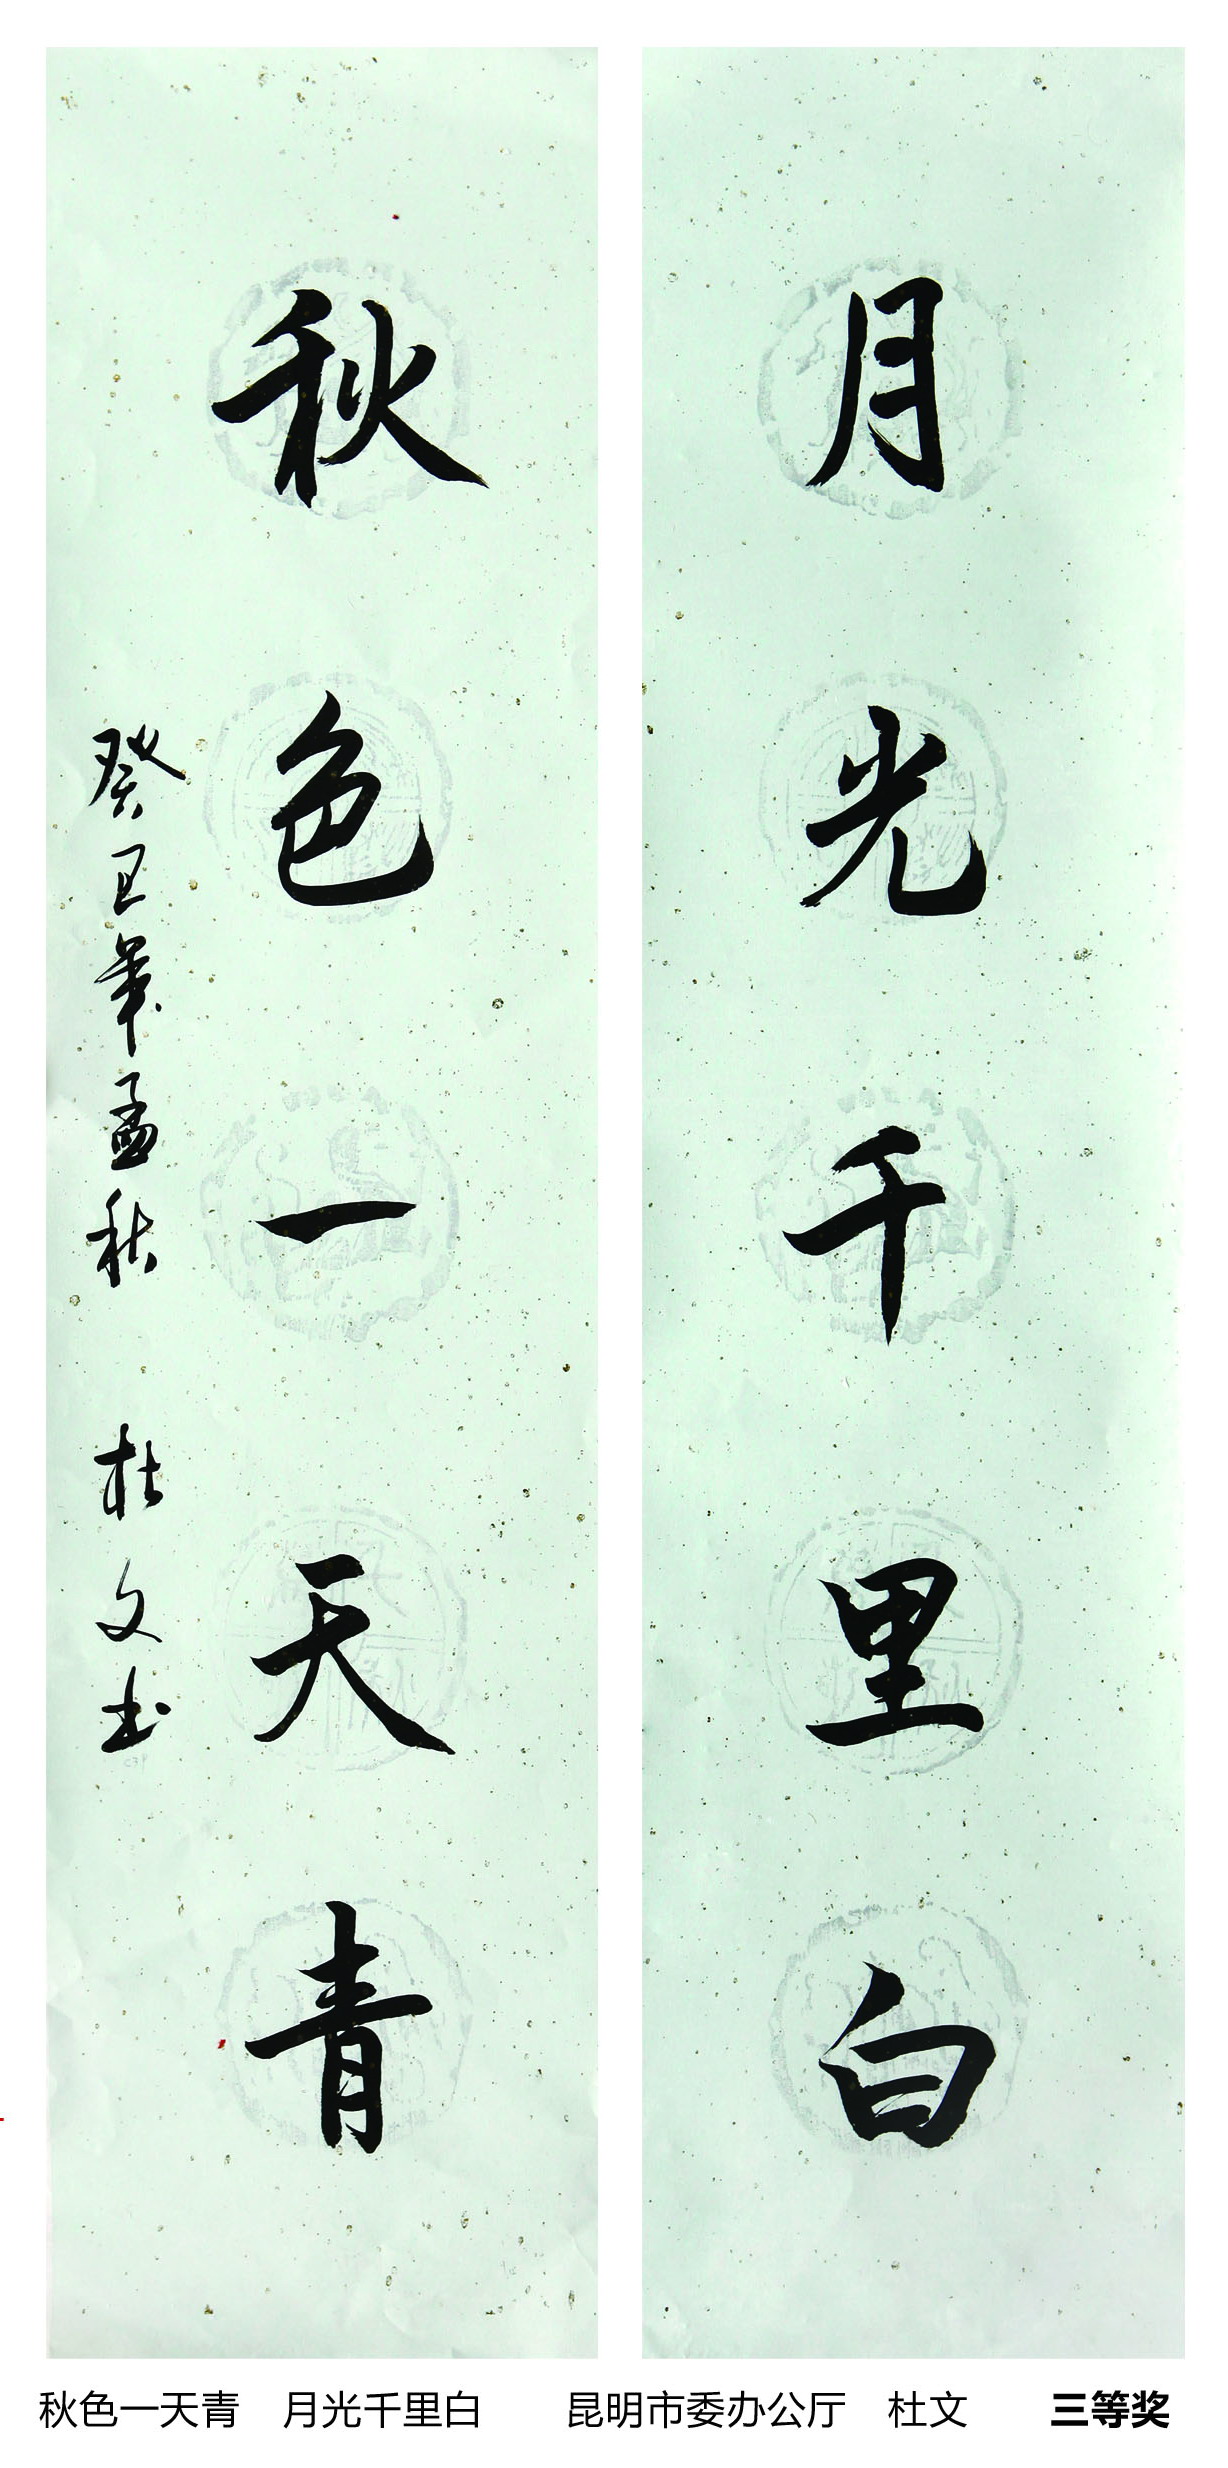 月光千里白
秋色一天青
癸巳年孟秋 杜文书
秋色一天青 月光千里白 昆明市委办公厅 杜文 三等奖